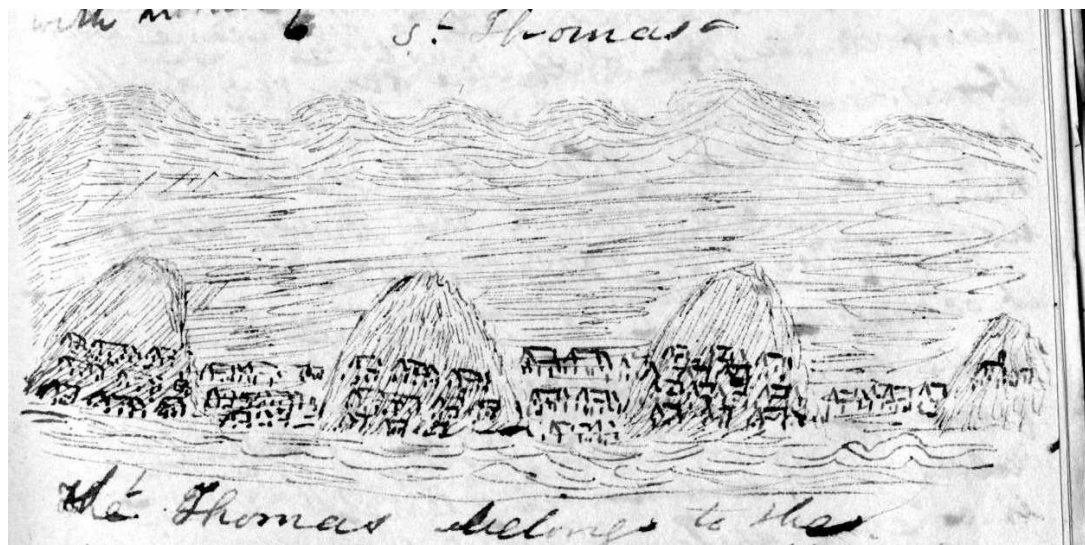 with
St Thomas
St Thomas belongs to the